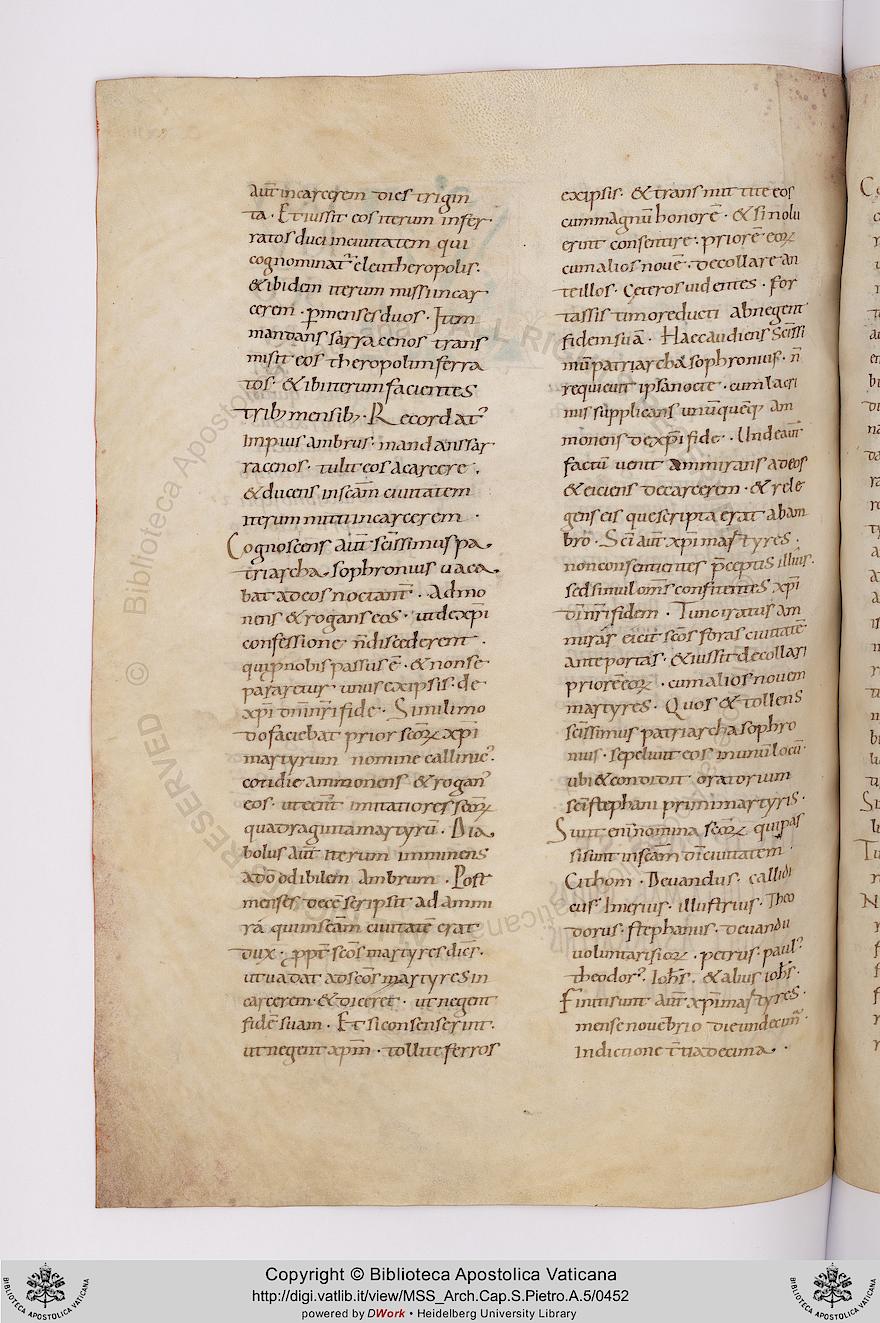 aut̄ incarcerem dies trigin
ta · Et iussit eos iterum infer·
ratos duci inciuitatem qui
cognominat᷒ eleutheropolis·
& ibidem iterum missi incar
cerem · p̄ menses duos · Item
mandans sarracenos trans
misit eos theropolim ferra
tos· & ibi iterum facientes
trib; mensib;· Recordat᷒
impius ambrus· mandans sar
racenos· tulit eos a carcere ·
& ducens insc̄am ciuitatem
iterum mittit incarcerem ·
Cognoscens aut̄ sc̄issimus pa
triarcha sophronius uaca
bat ad eos noctant̄ · Admo
nens & rogans eos· ut de xp̄i
confessione n̄ discederent ·
qui p nobis passus ē · & non se
pararetur unus ex ipsis· de
xp̄i dm̄ nr̄i fide · Simili mo
do faciebat prior sc̄oꝝ xp̄i
martyrum nomine callinic᷒·
cotidie ammonens & rogan᷒
eos· ut eēnt imitatiores sc̄oꝝ
quadraginta martyrū · Dia
bolus aut̄ iterum imminens
ad odibilem ambrum · Post
menses decē scripsit ad ammi
rā qui insc̄am ciuitatē erat
dux · ppt̄ sc̄os martyres dicēs·
ut uadat ad sc̄os martyres in
carcerem & diceret · ut negent
fidē suam · Et si consenserint·
ut negent xpm̄ · tollite ferros
ex ipsis· & transmittite eos
cum magnū honorē · & si nolu
erint consentire · priorē eoꝝ
cum alios nouē · decollare an
te illos· ceteros uidentes · for
tassis timore ducti abnegent
fidem suā · Haec audiens sc̄issi
mus patriarcha sophronius· n̄
requieuit ipsa nocte · cum lacri
mis supplicans unūquēq; am
monens de xp̄i fide · Unde aut̄
factū uenit ammirans ad eos
& eiciens de carcerem · & rele
gens eis que scripta erat ab am
bro · Sc̄i aut̄ xp̄i martyres ·
non consentientes p̄ceptis illius·
sed simul om̄s confitentes xp̄i
dī nr̄i fidem · Tunc iratus am
mirás eicit sc̄os foras ciuitatē
ante portas · & iussit decollari
priorē eoꝝ · cum alios nouem
martyres · Quos & tollens
sc̄issimus patriarcha sophro
nius · sepeliuit eos in unū locū·
ubi & condidit oratorium
sc̄i stephani primi martyris·
Sunt enī nomina sc̄oꝝ qui pas
si sunt insc̄am dī ciuitatem ·
Cithom · Deuandus· callidi
cus· Imerius· illustrius· Theo
dorus· stephanus· deuandu
uoluntarisioꝝ · petrus· paul᷒·
theodor᷒· Ioh̄s· & alius ioh̄s·
Finiti sunt aut̄ xp̄i martyres·
mense nouēbrio die undecim̄·
Indictione t̄tia decima ·
Copyright © Biblioteca Apostolica Vaticana
http://digi.vatlib.it/view/MSS_Arch.Cap.S.Pietro.A.5/0452
powered by DWork • Heidelberg University Library